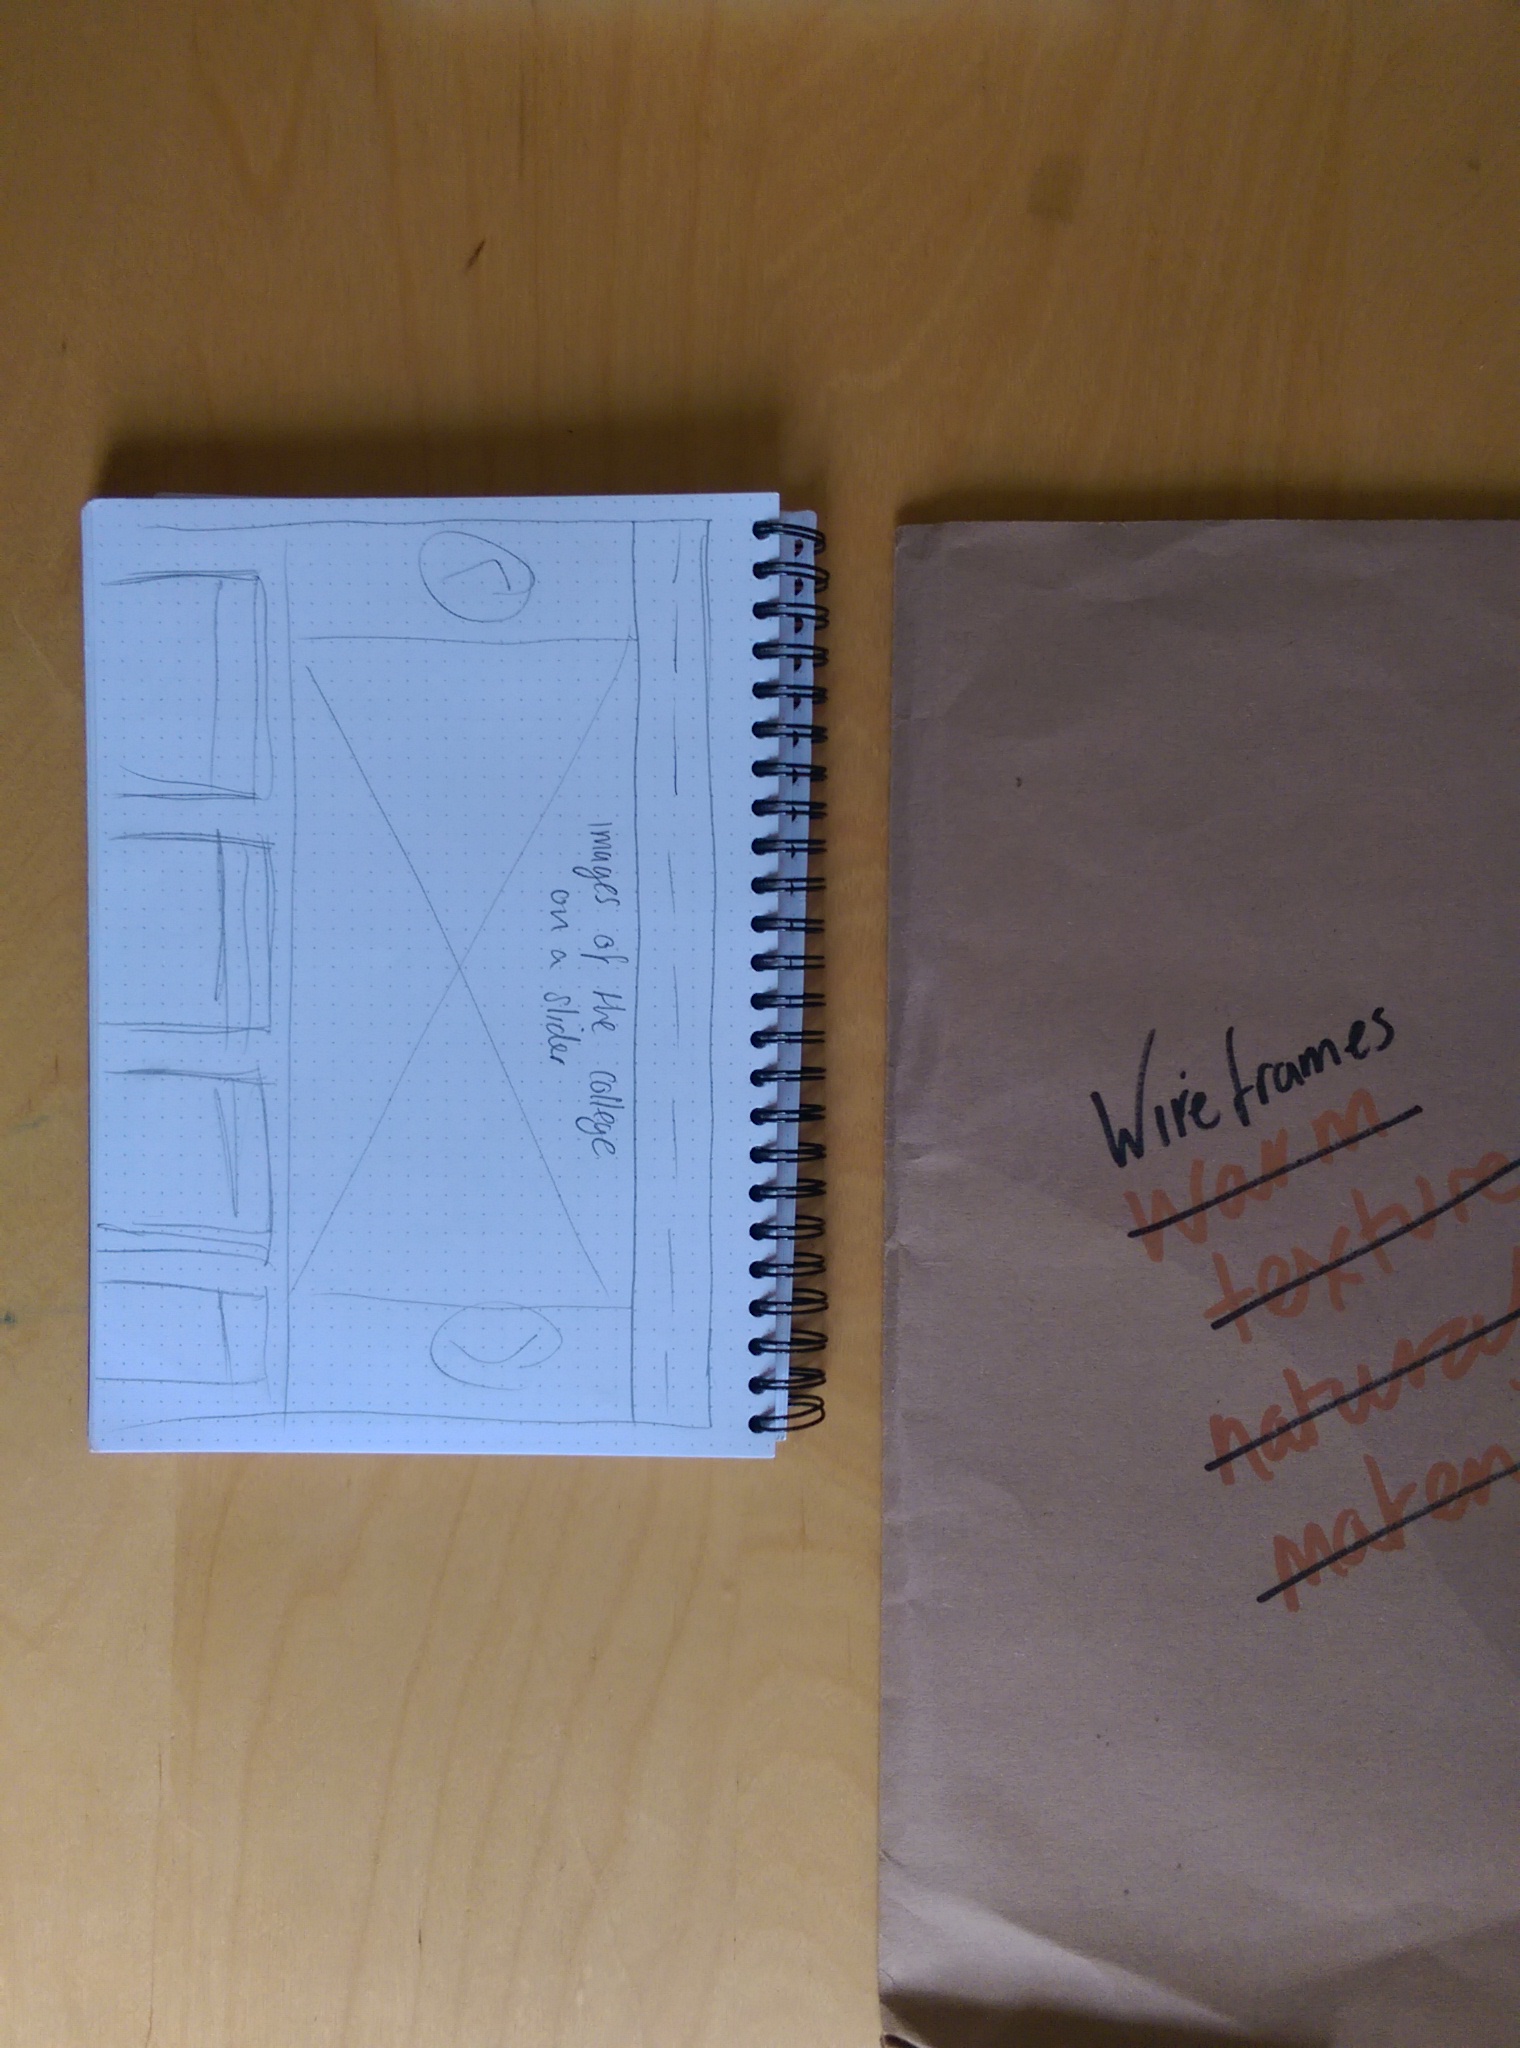 images of the college
on a slider
Wireframes
warm
texture
natural